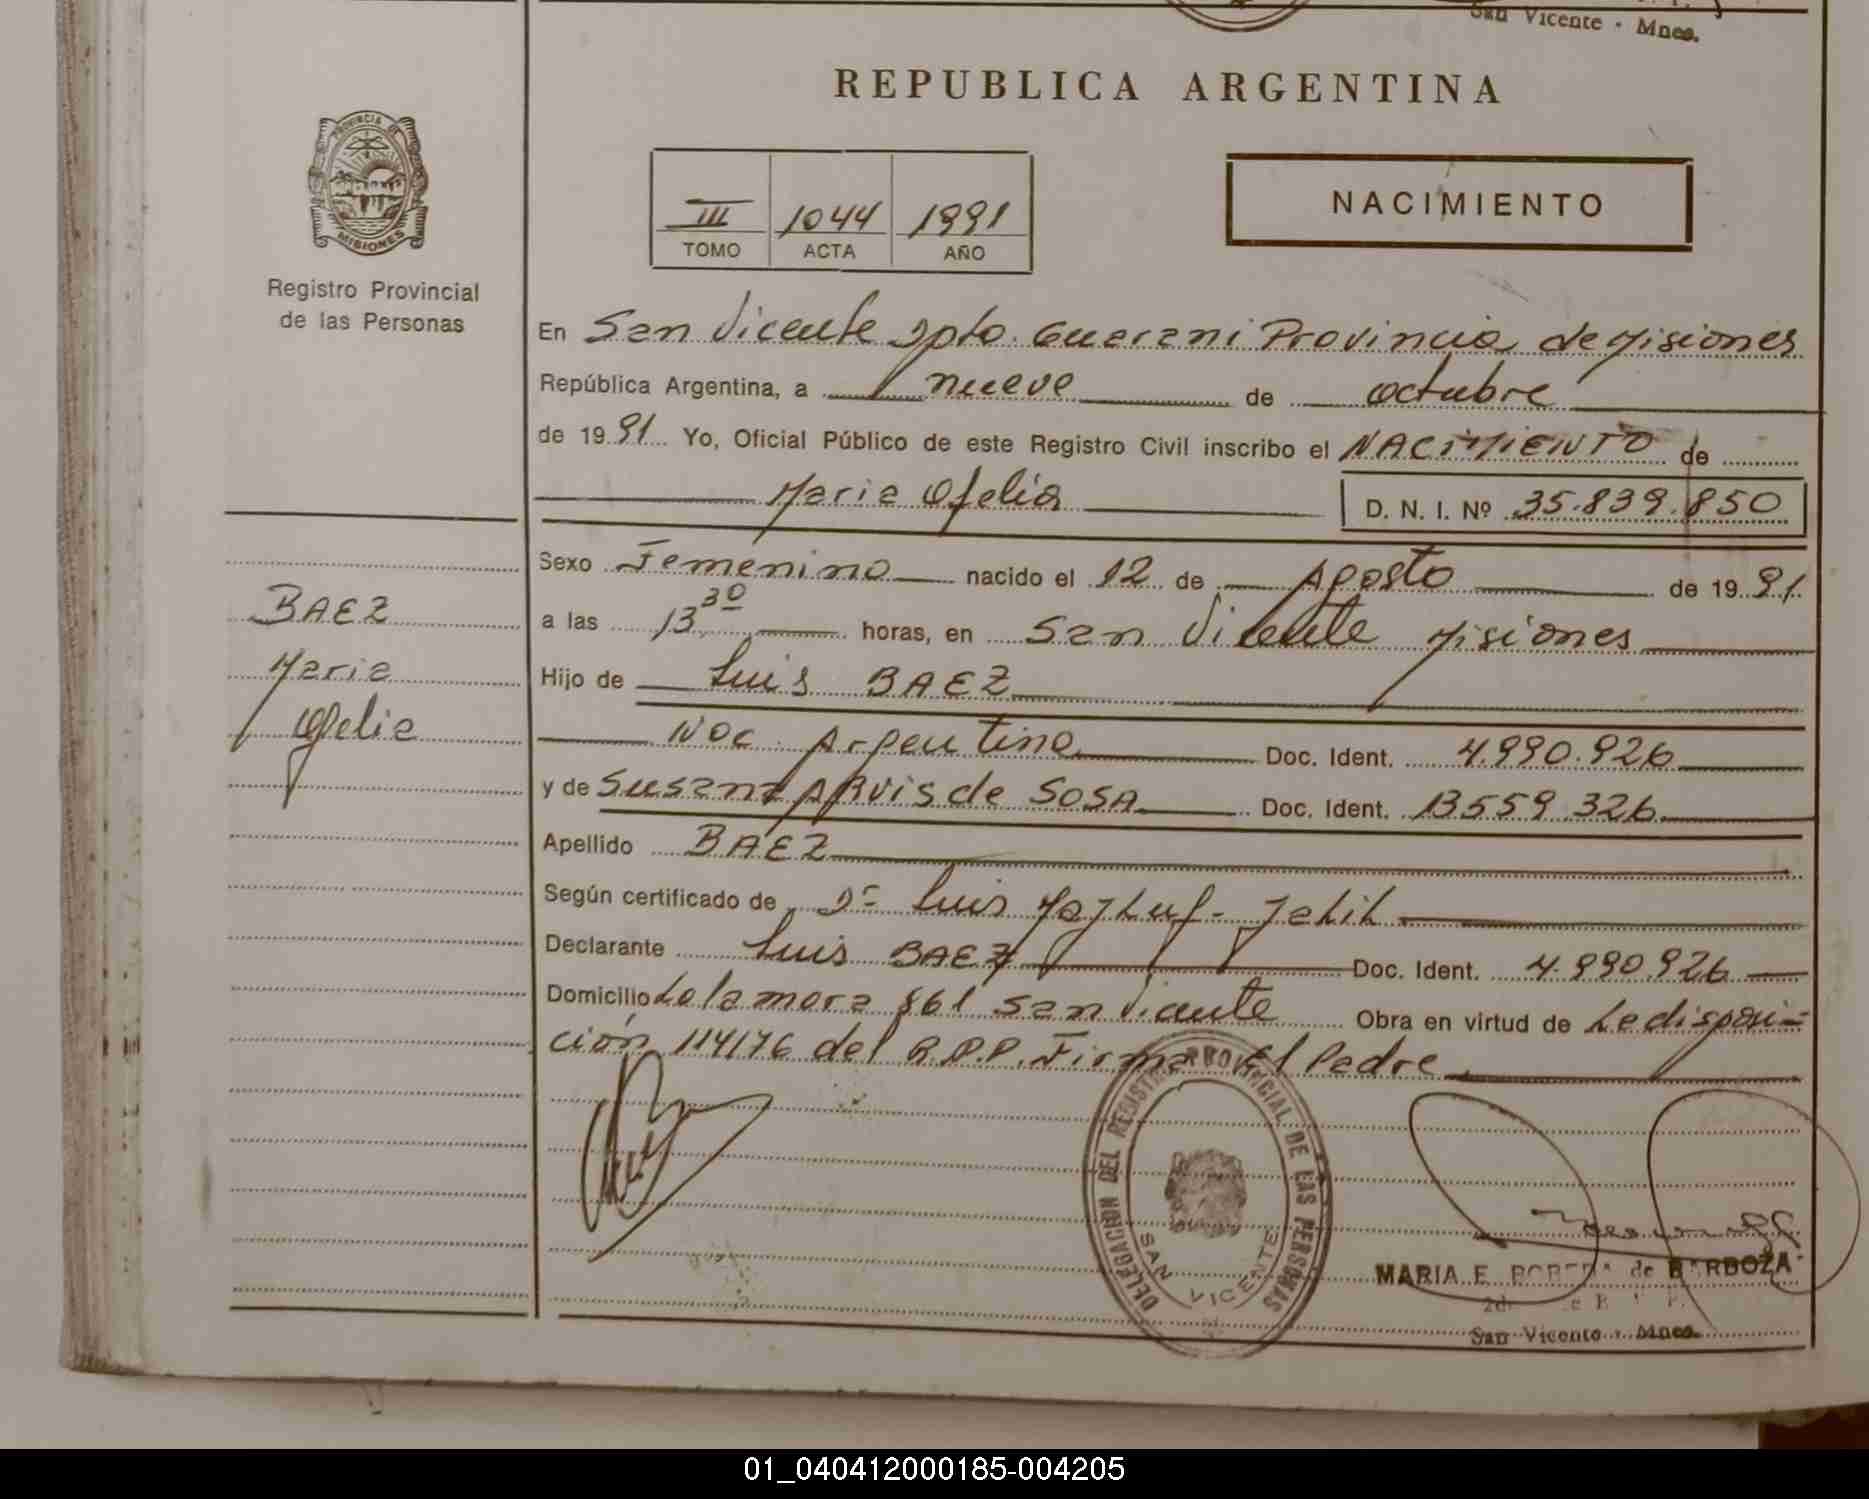 San Vicente - Mnes.
REPUBLICA ARGENTINA
PROVINCIA DE
MISIONES
Registro Provincial
de las Personas
III 1044 1991
TOMO ACTA AÑO
NACIMIENTO
En San Vicente Dpto. Guarani Provincia de Misiones
República Argentina, a nueve de octubre
de 1991 Yo, Oficial Público de este Registro Civil inscribo el NACIMIENTO de
Maria Ofelia D. N. I. Nº 35.839.850
Sexo Femenino nacido el 12 de Agosto de 1991.
a las 13 30 horas, en San Vicente Misiones
Hijo de Luis BAEZ
Nac. Argentina Doc. Ident. 4.990.926
y de Susana de SOSA Doc. Ident. 13559.326
Apellido BAEZ
Según certificado de Dr Luis
Declarante Luis BAEZ Doc. Ident. 4.990.926
Domicilio Lola mora 861 San Vicente Obra en virtud de La disposi-
ción 114/76 del R.P.P. Firma El Padre
BAEZ
Maria
Ofelia
DELEGACION DEL REGISTRO PROVINCIAL DE LAS PERSONAS
SAN VICENTE
MARIA E. de BARBOZA
San Vicente - Mnes.
01_040412000185-004205